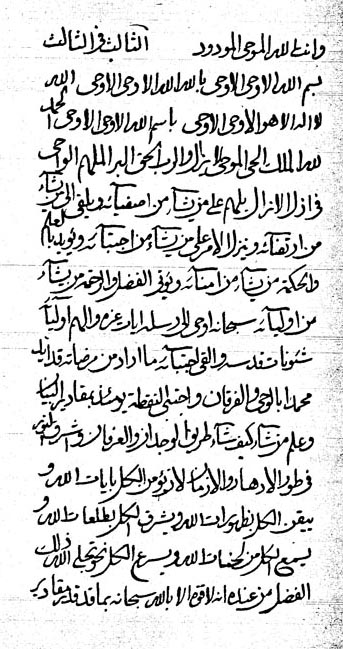 وانت الله الموحی المودود الثالث فی الثالث
بسم الله الاوحی الاوحی بالله الله الاوحی الاوحی الله
لا اله الا هو الاوحی الاوحی باسم الله الاوحی الاوحی الحمد
لله الملك الحی لم یزل ولا الحق البر الملهم الواحی
فی ازل الازال یلهم علی من یشاء من اصفیائه ویلقی الی من یشاء
من وینزل الامر علی من یشاء من احبائه ویوید بالعلم
والحکمة من یشاء من امنائه ویوتی الفضل والرحمة من یشاء
من اولیائه سبحانه اوحی الی رسله ایات عزه والهم اولیائه
شئونات قدسه والقی احبائه ما اراد من مرضاته قد اید
محمدا بالوحی والفرقان واجتبی النقطة یومئذ بمقادیر البیان
وعلم من یشاء کیف یشاء طریق الوجدان والعرفان
فی طور الادهار والازمان لان یؤمن الکل بایات الله و
یوقن الکل بظهورات الله ویشرق الکل بطلعات الله و
یسمع الکل من نغمات الله ویسرع الکل نحو تجلی الله ذلك
الفضل من عنده انه لا قوة الا بالله سبحانه بما قد قدر مقادیر